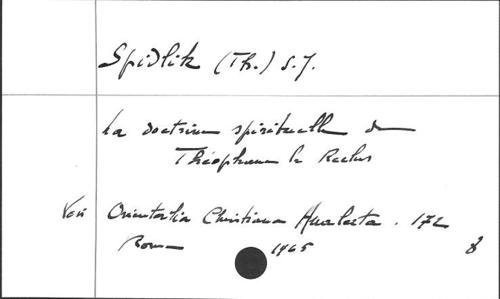 Spidlik (Th.) S.J.
La doctrine spirituelle de
Théophane le Reclus
Voir Orientalia Christiana Analecta. 172
Roma 1965 8